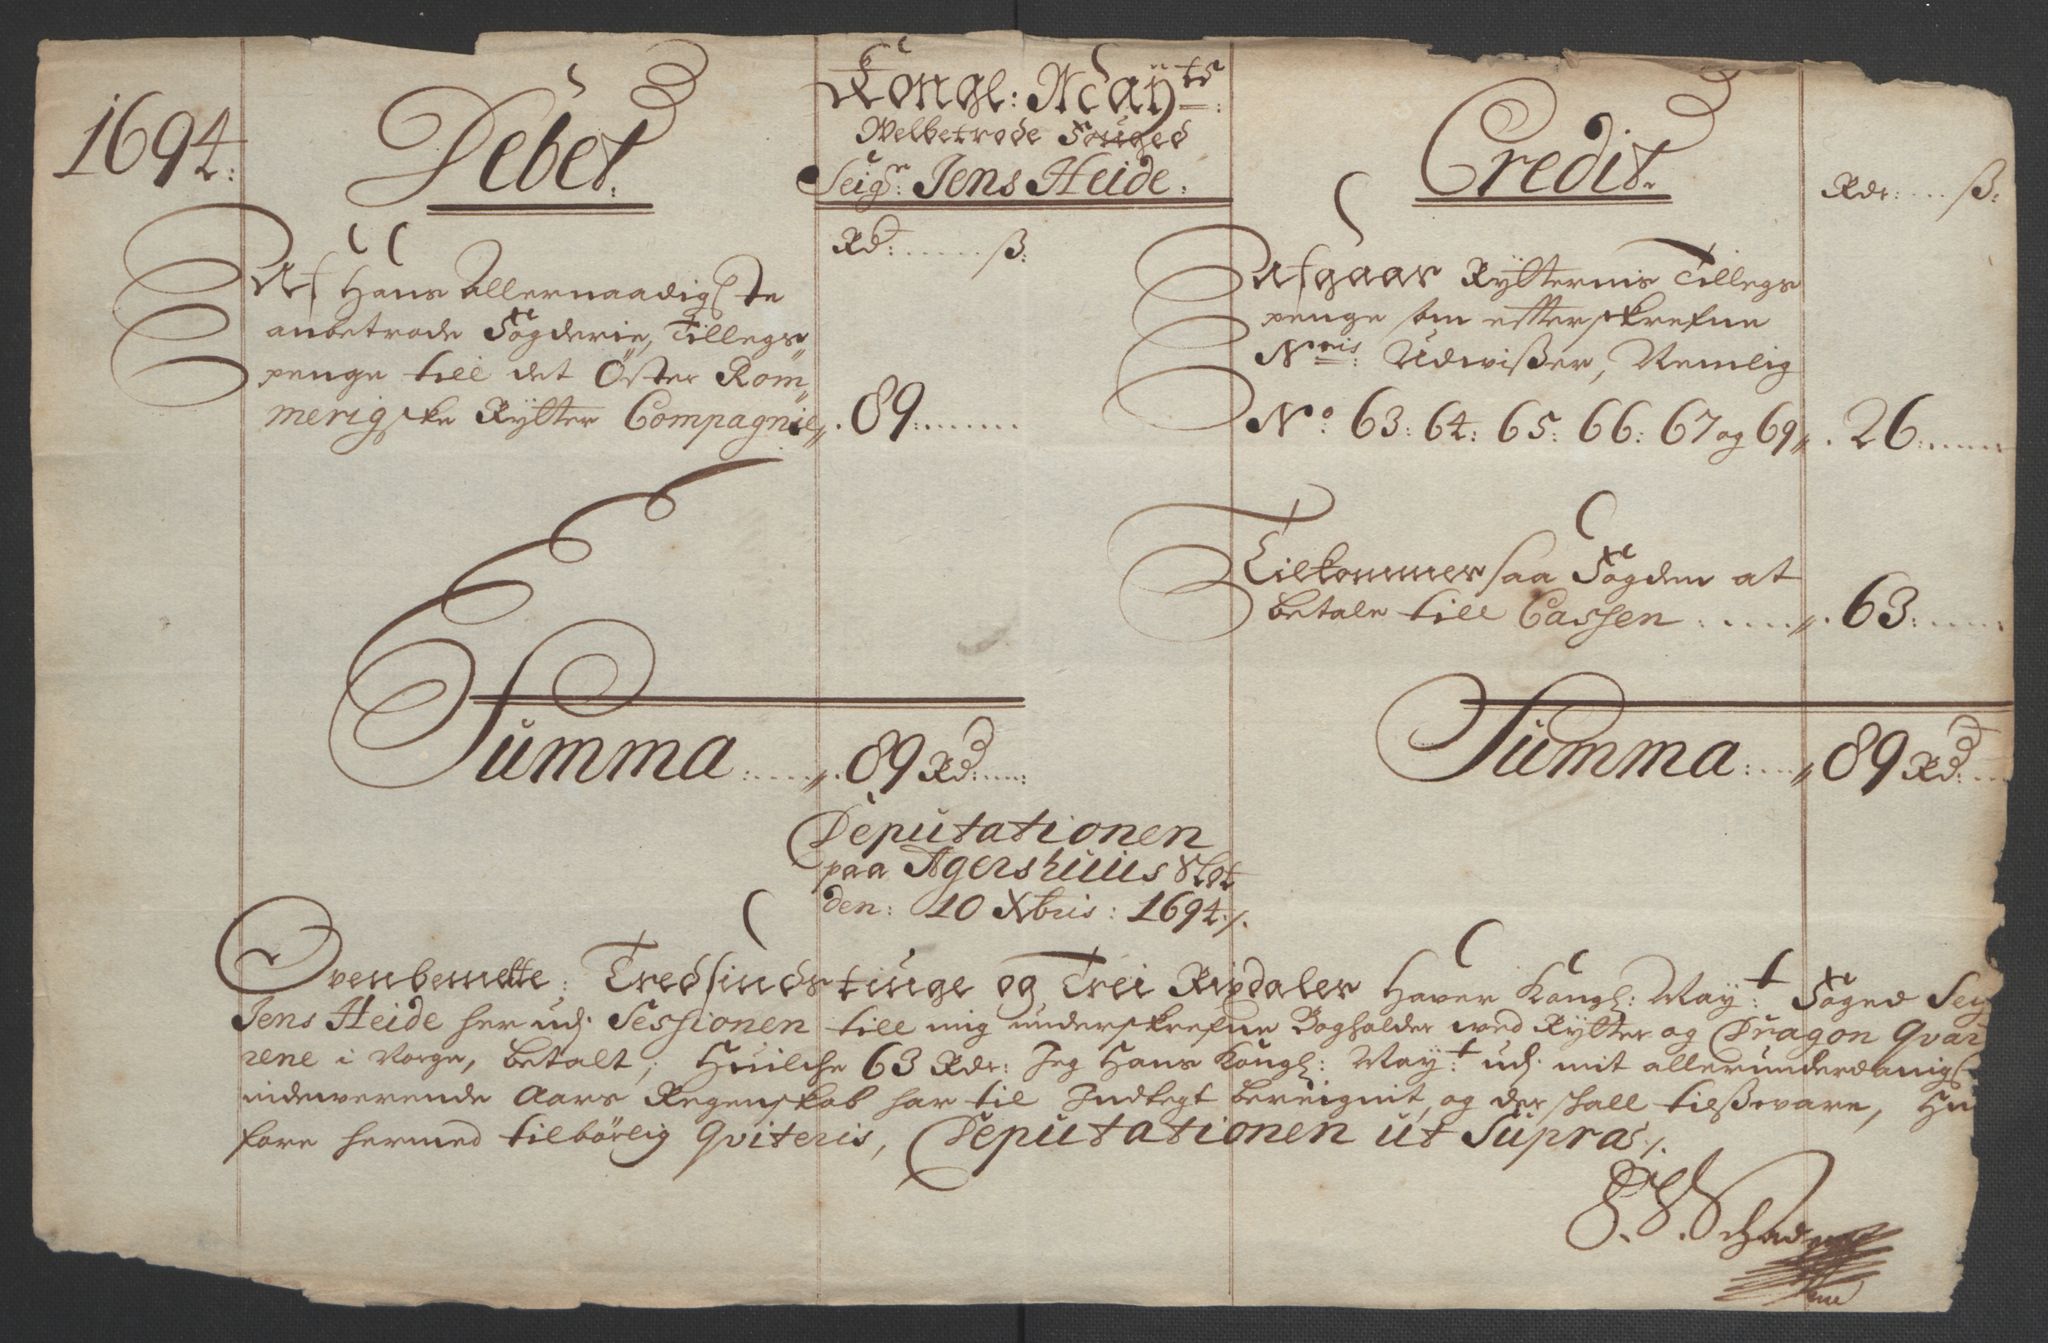 1694:
Debet.
Kongl: Maÿts:
Welbetrode Fouged
Seigr: Jens Heide.
Credit.
Rdr: .... ß:
Rd: ...... ß:
Af Hans Allernaadigste
anbetrode Fogderie, Tillegs
penge till det Öster Rom„
merigske Rytter Compagnie„. 89: ......
Afgaar Rytternis Tillegs
penge som efterskrefne
Nris: Udwißer, Nemlig
No: 63: 64: 65: 66: 67 og 69„. 26: .....
Tilkommer saa Fogden at
betale till Cassen ....„. 63: .....
Summa: ....„. 89 Rd: ....
Summa: ...„ 89 Rd: ...
Deputationen
paa Agershuus Slot
den: 10 Xbris: 1694./.
Ovenbemelte: Tredsindstiuge og Trei Rixdaler Hawer Kongl: May:t Foged Seig
Jens Heide her udj Sessionen till mig underskrefne Bogholder wed Rytter og Dragon Qvar
rene i Norge, betalt, Huilche 63 Rdr: Jeg Hans Kongl: May:t udj mit allerunderdanigst
indewerende Aars Regenskab har til Indtegt bereignit, og der skall tilßware, Hu
fore hermed tilbörlig Qviteris, Deputationen ut Supra ./.